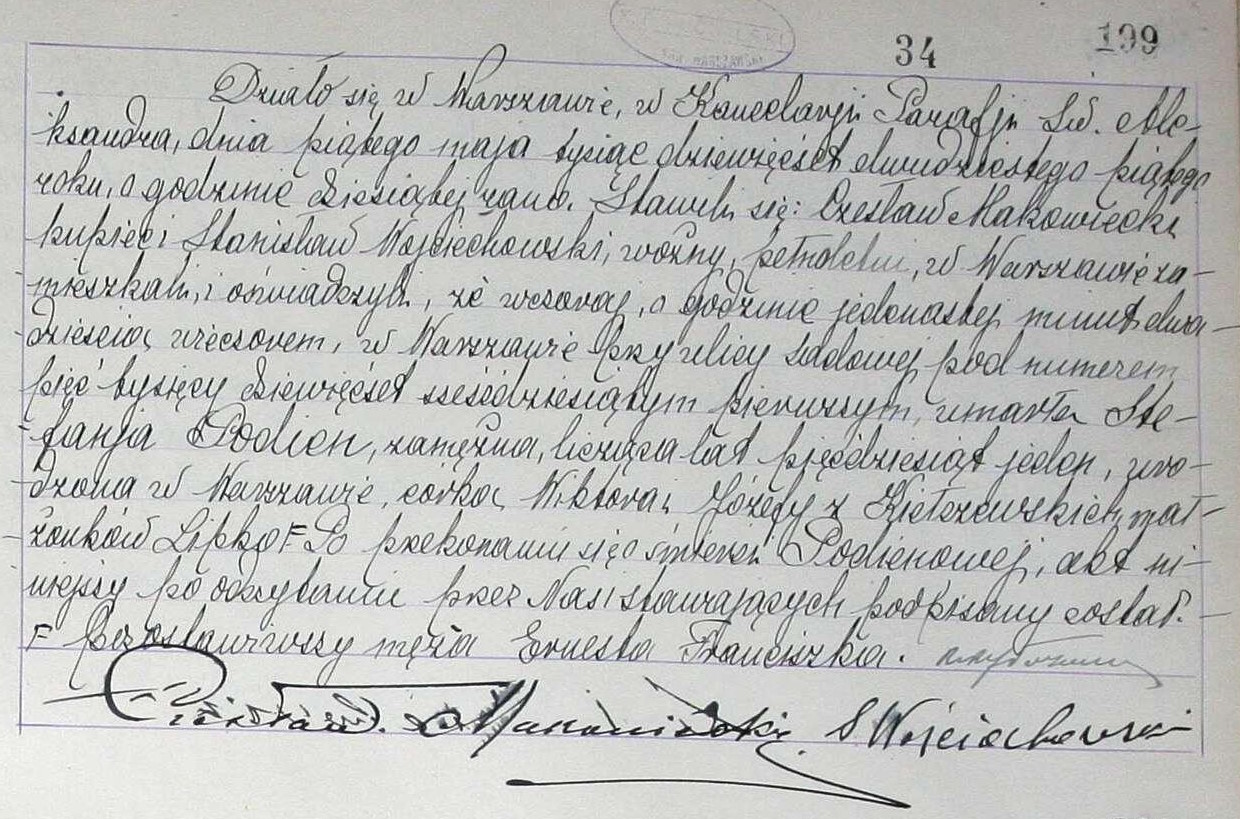 34 199
Działo się w Warszawie, w Kancelarji Parafji Św. Ale-
ksandra, dnia piątego maja tysiąc dziewięćset dwudziestego piątego
roku, o godzinie dziesiątej rano. Stawili się: Czesław Makowiecki
kupiec i Stanisław Wojciechowski, woźny, pełnoletni, w Warszawie za-
mieszkali, i oświadczyli, że wczoraj, o godzinie jedenastej minut dwa-
dzieścia, wieczorem, w Warszawie przy ulicy Sadowej pod numerem
pięć tysięcy dziewięćset sześćdziesiątym pierwszym, umarła Ste-
fanja Podien, zamężna, licząca lat pięćdziesiąt jeden, uro-
dzona w Warszawie, córka Wiktora i Józefy z Kiełczewskich, mał-
żonków Lipko F Po przekonaniu się o śmierci Podienowej, akt ni-
niejszy po odczytaniu przez Nas i stawających podpisany został.
F pozostawiwszy męża Ernesta Franciszka.
Czesław Makowiecki S Wojciechowski